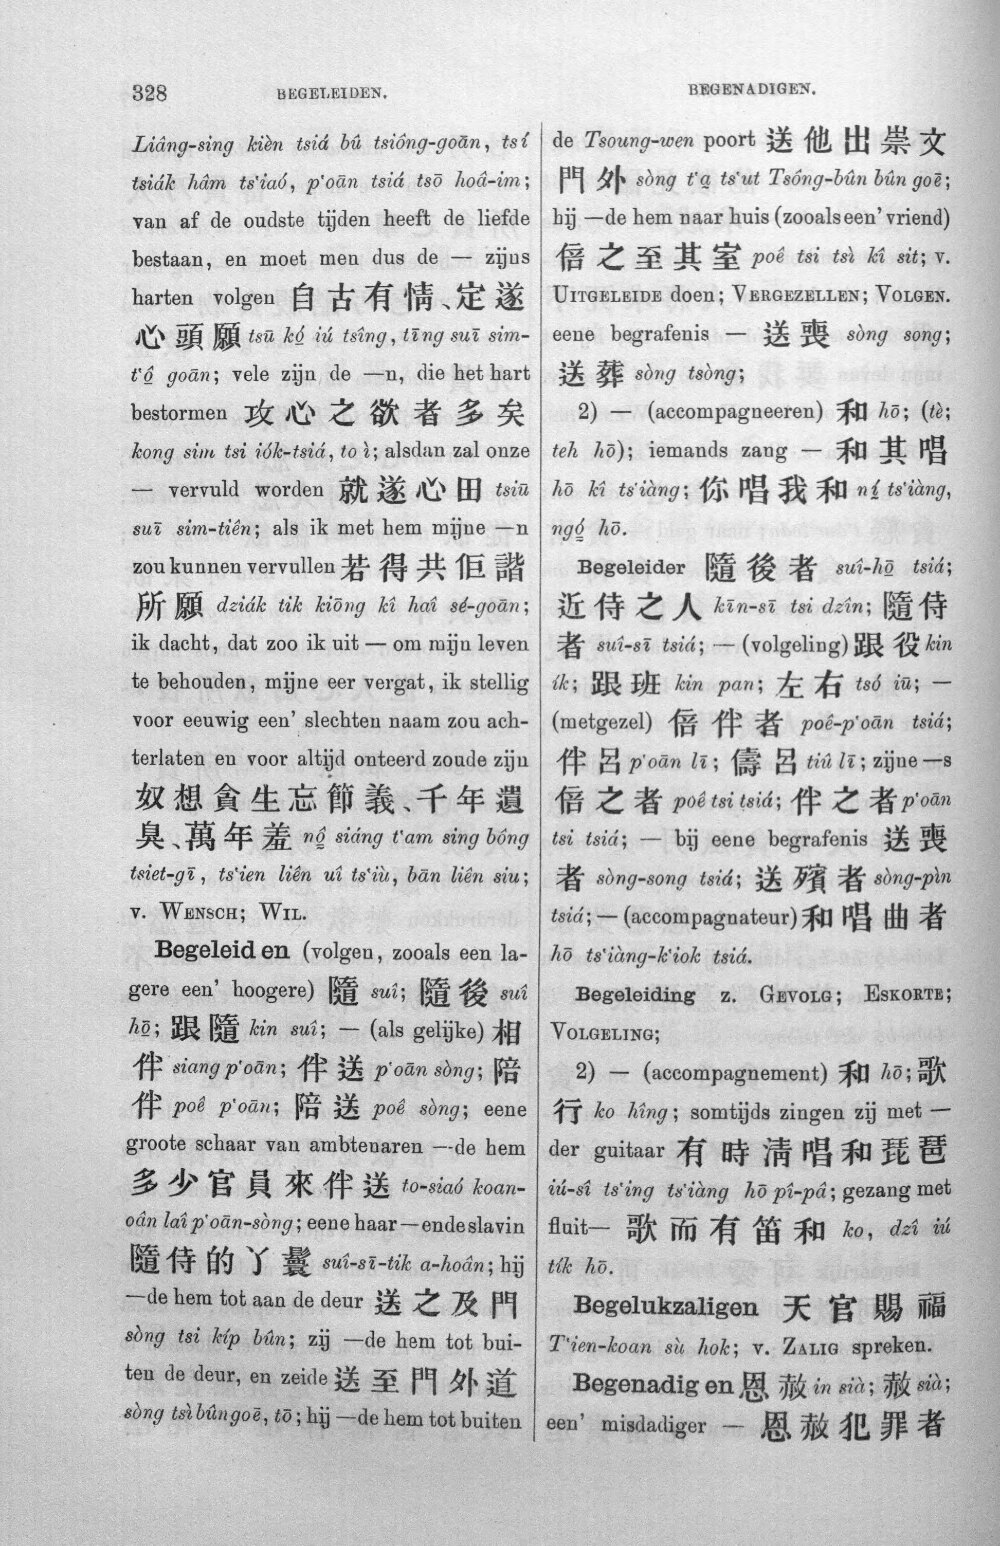 328
BEGELEIDEN.
BEGENADIGEN.
Liâng-sing kièn tsiá bû tsiông-goān, tsí
tsiák hâm ts'iaó, p'oān tsiá tsō hoâ-im;
van af de oudste tijden heeft de liefde
bestaan, en moet men dus de — zijns
harten volgen 自古有情、定遂
心頭願 tsū kó͘ iú tsîng, tīng suī sim-
t'ô͘ goān; vele zijn de —n, die het hart
bestormen 攻心之欲者多矣
kong sim tsi iók-tsiá, to ì; alsdan zal onze
— vervuld worden 就遂心田 tsiū
suī sim-tiên; als ik met hem mijne —n
zou kunnen vervullen 若得共佢諧
所願 dziák tik kiōng kî haî sé-goān;
ik dacht, dat zoo ik uit — om mijn leven
te behouden, mijne eer vergat, ik stellig
voor eeuwig een' slechten naam zou ach-
terlaten en voor altijd onteerd zoude zijn
奴想貪生忘節義、千年遺
臭、萬年羞 nô͘ siáng t'am sing bông
tsiet-gī, ts'ien liên uî ts'iù, bān liên siu;
v. WENSCH; WIL.
Begeleiden (volgen, zooals een la-
gere een' hoogere) 隨 suî; 隨後 suî
hō͘; 跟隨 kin suî; — (als gelijke) 相
伴 siang p'oān; 伴送 p'oān sòng; 陪
伴 poê p'oān; 陪送 poê sòng; eene
groote schaar van ambtenaren —de hem
多少官員來伴送 to-siaó koan-
oân laî p'oān-sòng; eene haar—ende slavin
隨侍的丫鬟 suî-sī-tik a-hoân; hij
—de hem tot aan de deur 送之及門
sòng tsi kíp bûn; zij —de hem tot bui-
ten de deur, en zeide 送至門外道
sòng tsì bûn goē, tō; hij —de hem tot buiten
de Tsoung-wen poort 送他出崇文
門外 sòng t'a̤ ts'ut Tsông-bûn bûn goē;
hij —de hem naar huis (zooals een' vriend)
倍之至其室 poê tsi tsì kî sit; v.
UITGELEIDE doen; VERGEZELLEN; VOLGEN.
eene begrafenis — 送喪 sòng song;
送葬 sòng tsòng;
2) — (accompagneeren) 和 hō; (tè;
teh hō); iemands zang — 和其唱
hō kî ts'iàng; 你唱我和 ní ts'iàng,
ngó͘ hō.
Begeleider 隨後者 suî-hō͘ tsiá;
近侍之人 kīn-sī tsi dzîn; 隨侍
者 suî-sī tsiá; — (volgeling) 跟役 kin
ík; 跟班 kin pan; 左右 tsó iū; —
(metgezel) 倍伴者 poê-p'oān tsiá;
伴呂 p'oān lī; 儔呂 tiû lī; zijne —s
倍之者 poê tsi tsiá; 伴之者 p'oān
tsi tsiá; — bij eene begrafenis 送喪
者 sòng-song tsiá; 送殯者 sòng-pìn
tsiá; — (accompagnateur) 和唱曲者
hō ts'iàng-k'iok tsiá.
Begeleiding z. GEVOLG; ESKORTE;
VOLGELING;
2) — (accompagnement) 和 hō; 歌
行 ko hîng; somtijds zingen zij met —
der guitaar 有時淸唱和琵琶
iú-sî ts'ing ts'iàng hō pî-pâ; gezang met
fluit— 歌而有笛和 ko, dzî iú
tík hō.
Begelukzaligen 天官賜福
T'ien-koan sù hok; v. ZALIG spreken.
Begenadigen 恩赦 in sià; 赦 sià;
een' misdadiger — 恩赦犯罪者